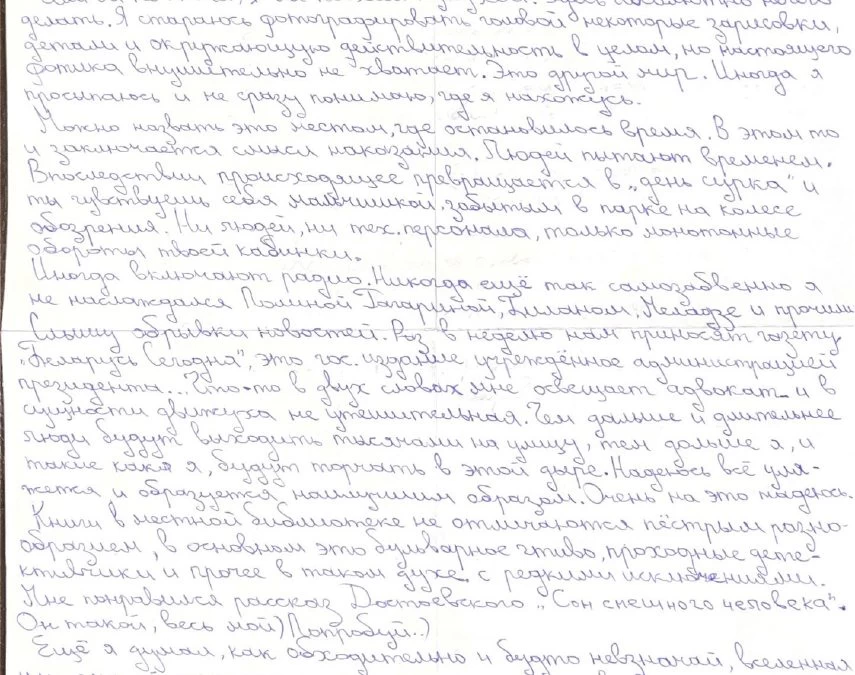 делать. Я стараюсь фотографировать головой некоторые зарисовки,
детали и окружающую действительность в целом, но настоящего
фотика внушительно не хватает. Это другой мир. Иногда я
просыпаюсь и не сразу понимаю, где я нахожусь.
Можно назвать это местом, где остановилось время. В этом то
и заключается смысл наказания. Людей пытают временем.
Впоследствии происходящее превращается в „день сурка" и
ты чувствуешь себя мальчишкой забытым в парке на колесе
обозрения. Ни людей, ни тех. персонала, только монотонные
обороты твоей кабинки.
Иногда включают радио. Никогда ещё так самозабвенно я
не наслаждался Полиной Гагариной, Биланом, Меладзе и прочими
Слышу обрывки новостей. Раз в неделю нам приносят газету
„Беларусь Сегодня", это гос. издание учреждённое администрацией
президента... Что-то в двух словах мне освещает адвокат и в
сущности движуха не утешительная. Чем дальше и длительнее
люди будут выходить тысячами на улицу, тем дольше я, и
такие как я, будут торчать в этой дыре. Надеюсь всё уля-
жется и образуется наилучшим образом. Очень на это надеюсь.
Книги в местной библиотеке не отличаются пёстрым разно-
образием, в основном это бульварное чтиво, проходные дете-
ктивчики и прочее в таком духе с редкими исключениями.
Мне понравился рассказ Достоевского „Сон смешного человека".
Он такой, весь мой) Попробуй..)
Ещё я думал, как обходительно и будто невзначай, вселенная